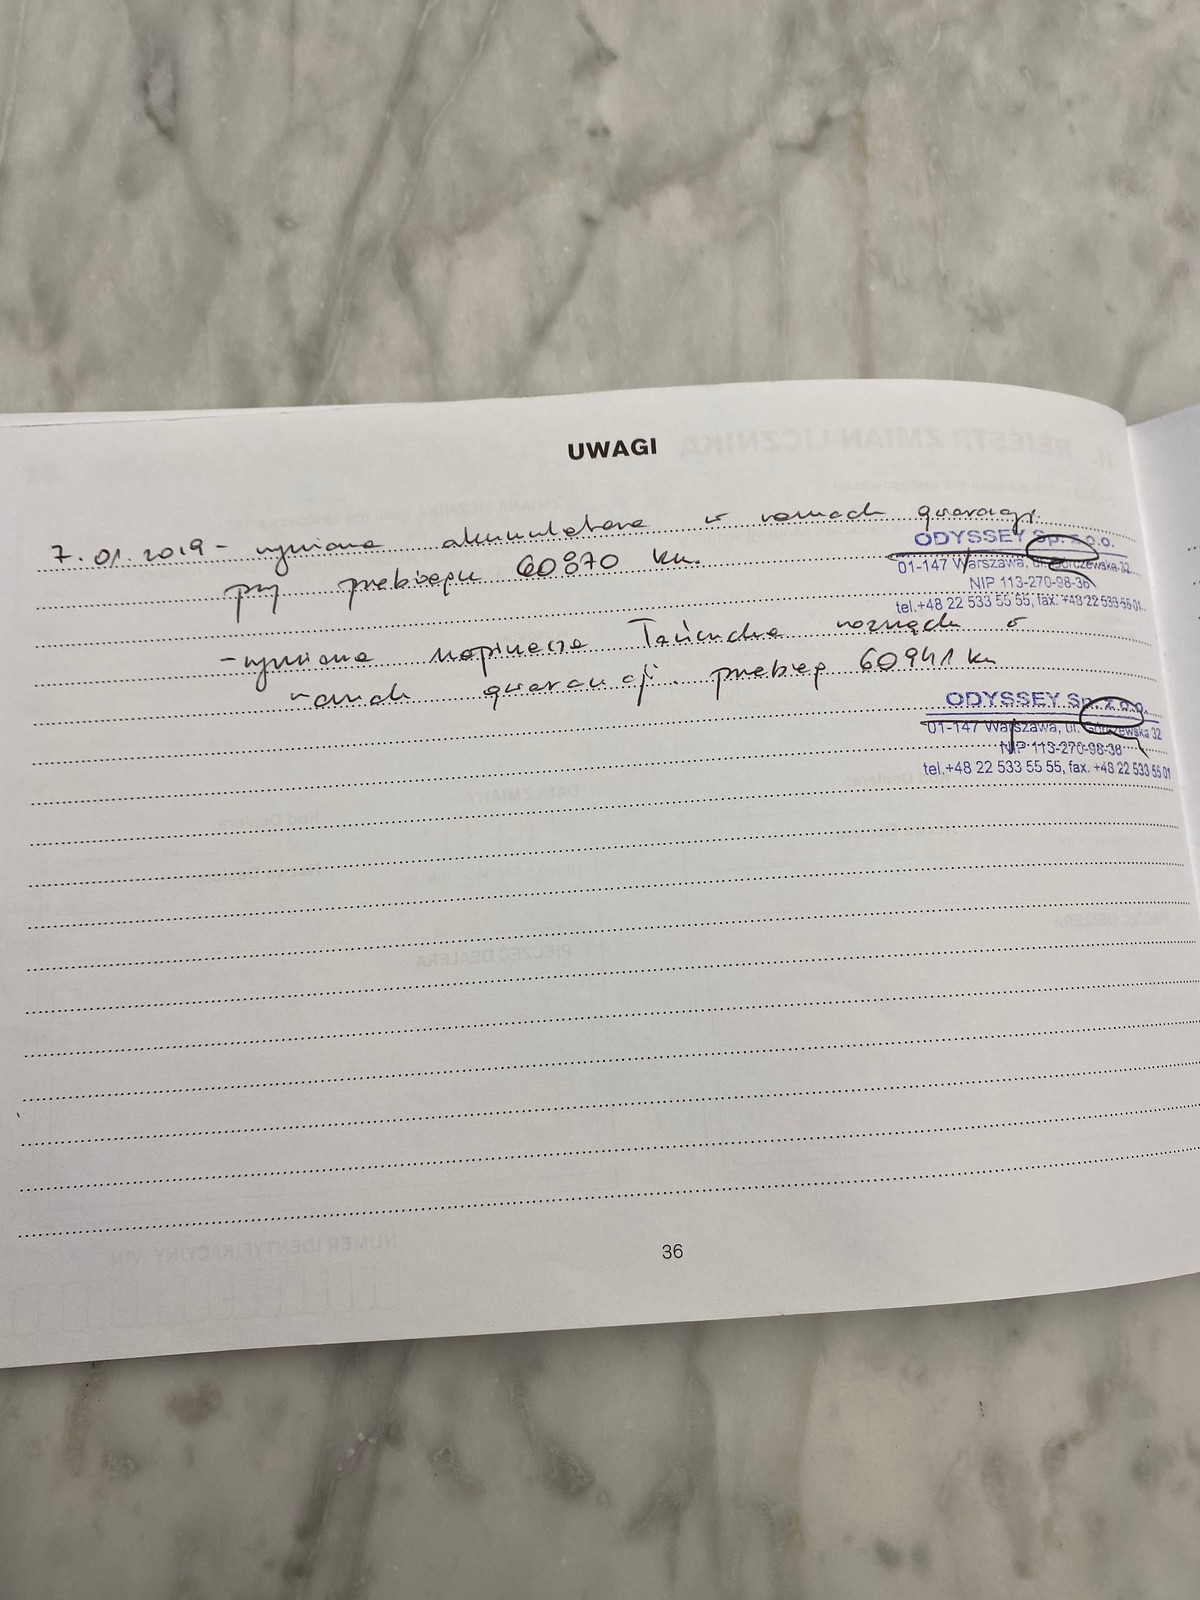 UWAGI
7.01.2019 - wymiana akumulatora w ramach gwarancji.
przy przebiegu 60870 km.
ODYSSEY Sp. z o.o.
01-147 Warszawa, ul. Górczewska 32
NIP 113-270-98-36
tel.+48 22 533 55 55, fax. +48 22 533 55 01
- wymiana napinacza łańcucha rozrządu w
ramach gwarancji. przebieg 60941 km
ODYSSEY Sp. z o.o.
01-147 Warszawa, ul. Górczewska 32
NIP 113-270-98-36
tel.+48 22 533 55 55, fax. +48 22 533 55 01
36